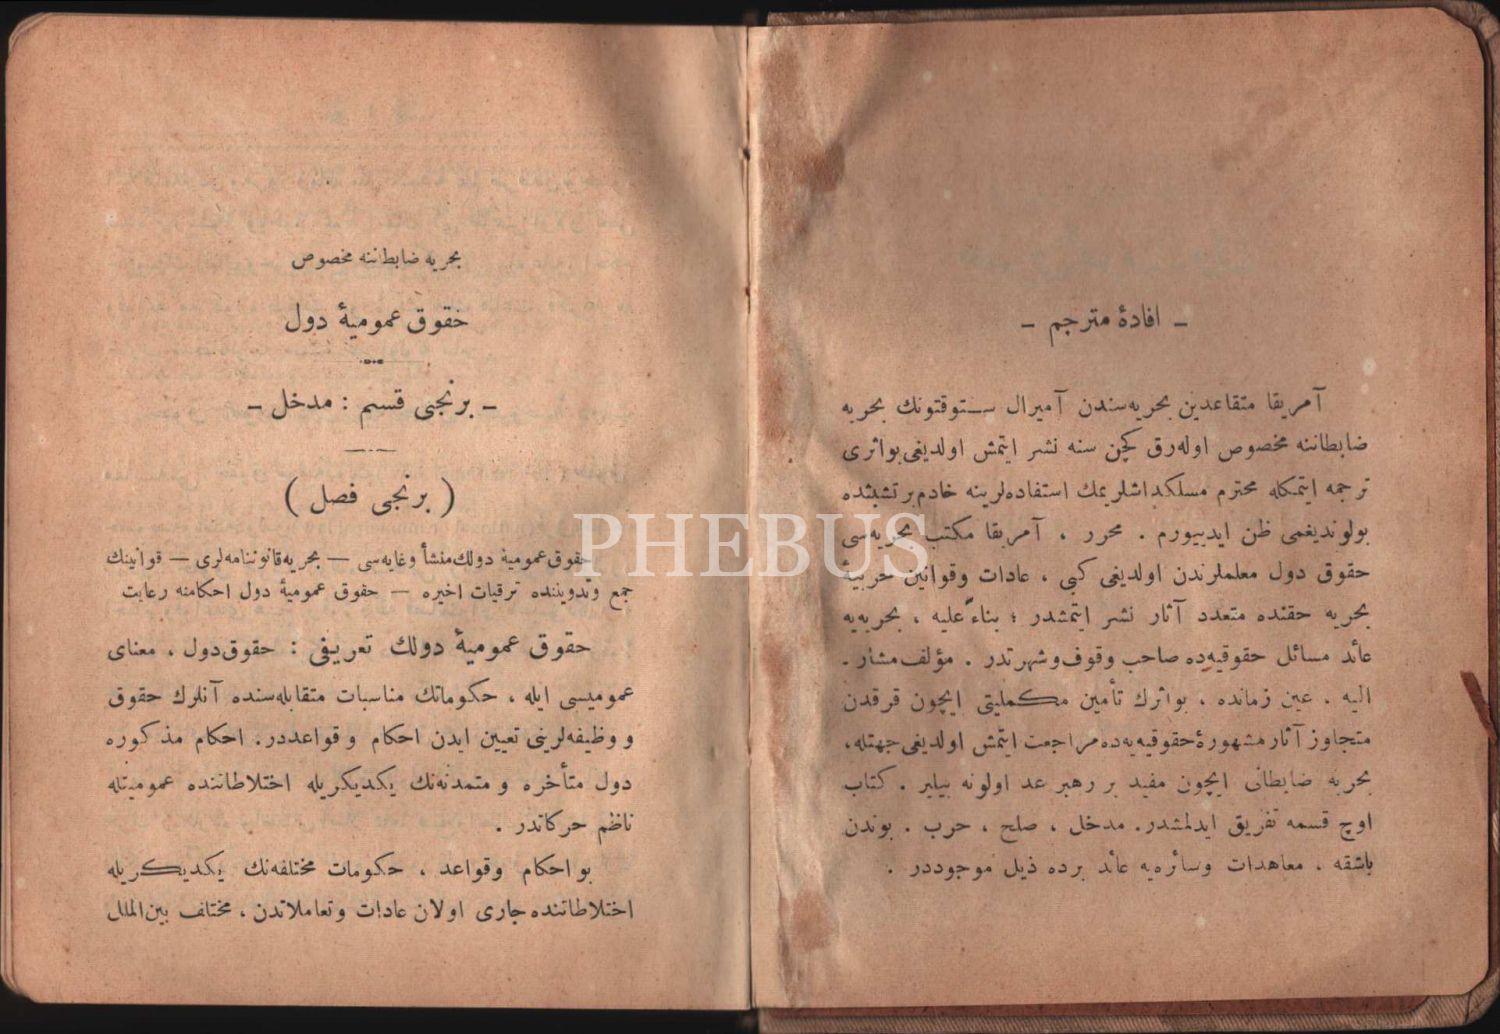 ـ افادهٔ مترجم ـ
آمریقا متقاعدین بحریه‌سندن آمیرال ستوقتونك بحریه
ضابطاننه مخصوص اوله‌رق كچن سنه نشر ایتمش اولدیغی بو اثری
ترجمه ایتمكله محترم مسلكداشلریمك استفاده‌لرینه خادم بر تشبثده
بولوندیغمی ظن ایدییورم . محرر ، آمریقا مكتب بحریه‌سی
حقوق دول معلملرندن اولدیغی كبی ، عادات وقوانین حربیهٔ
بحریه حقنده متعدد آثار نشر ایتمشدر ؛ بناءً علیه ، بحریه‌یه
عائد مسائل حقوقیه‌ده صاحب وقوف وشهرتدر . مؤلف مشار ـ
الیه ، عین زمانده ، بو اثرك تأمین مكملیتی ایچون قرقدن
متجاوز آثار مشهورهٔ حقوقیه‌یه‌ده مراجعت ایتمش اولدیغی جهتله،
بحریه ضابطانی ایچون مفید بر رهبر عد اولونه بیلیر . كتاب
اوچ قسمه تفریق ایدلمشدر. مدخل ، صلح ، حرب . بوندن
باشقه ، معاهدات وسائره‌یه عائد برده ذیل موجوددر .
بحریه ضابطاننه مخصوص
حقوق عمومیهٔ دول
ـ برنجی قسم : مدخل ـ
( برنجی فصل )
حقوق عمومیهٔ دولك منشأ وغایه‌سی — بحریه قانوننامه‌لری — قوانینك
جمع وتدویننده ترقیات اخیره — حقوق عمومیهٔ دول احكامنه رعایت
حقوق عمومیهٔ دولك تعریفی : حقوق دول ، معنای
عمومیسی ایله ، حكوماتك مناسبات متقابله‌سنده آنلرك حقوق
و وظیفه‌لرینی تعیین ایدن احكام و قواعددر. احكام مذكوره
دول متأخره و متمدنه‌نك یكدیكریله اختلاطاتنده عمومیتله
ناظم حركاتدر .
بو احكام وقواعد ، حكومات مختلفه‌نك یكدیكریله
اختلاطاتنده جاری اولان عادات وتعاملاتدن ، مختلف بین الملل
PHEBUS